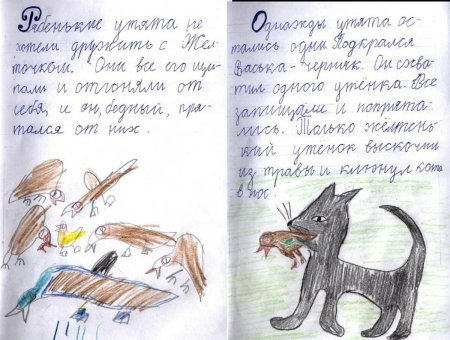 Рябенькие утята не
хотели дружить с Жел-
точком. Они все его щи-
пали и отгоняли от
себя, и он, бедный, пря-
тался от них.
Однажды утята ос-
тались одни. Подкрался
Васька-черныш. Он схва-
тил одного утёнка. Все
запищали и попрята-
лись. Только жёлтень-
кий утёнок выскочил
из травы и клюнул кота
в нос.